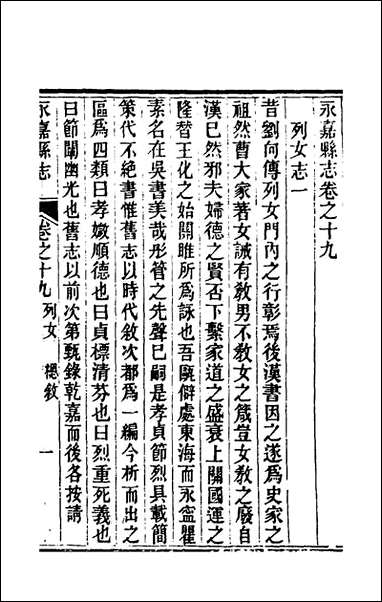 永嘉縣志卷之十九
列女志一
昔劉向傳列女門內之行彰焉後漢書因之遂爲史家之
祖然曹大家著女誡有敎男不敎女之箴豈女敎之廢自
漢已然邪夫婦德之賢否下繫家道之盛衰上關國運之
隆替王化之始關雎所爲詠也吾甌僻處東海而永寍瞿
素名在吳書美哉彤管之先聲已嗣是孝貞節烈具載簡
策代不絕書惟舊志以時代敘次都爲一編今析而出之
區爲四類曰孝媺順德也曰貞標淸芬也曰烈重死義也
曰節闡幽光也舊志以前次第甄錄乾嘉而後各按請
永嘉縣志 卷之十九 列女 總敘 一